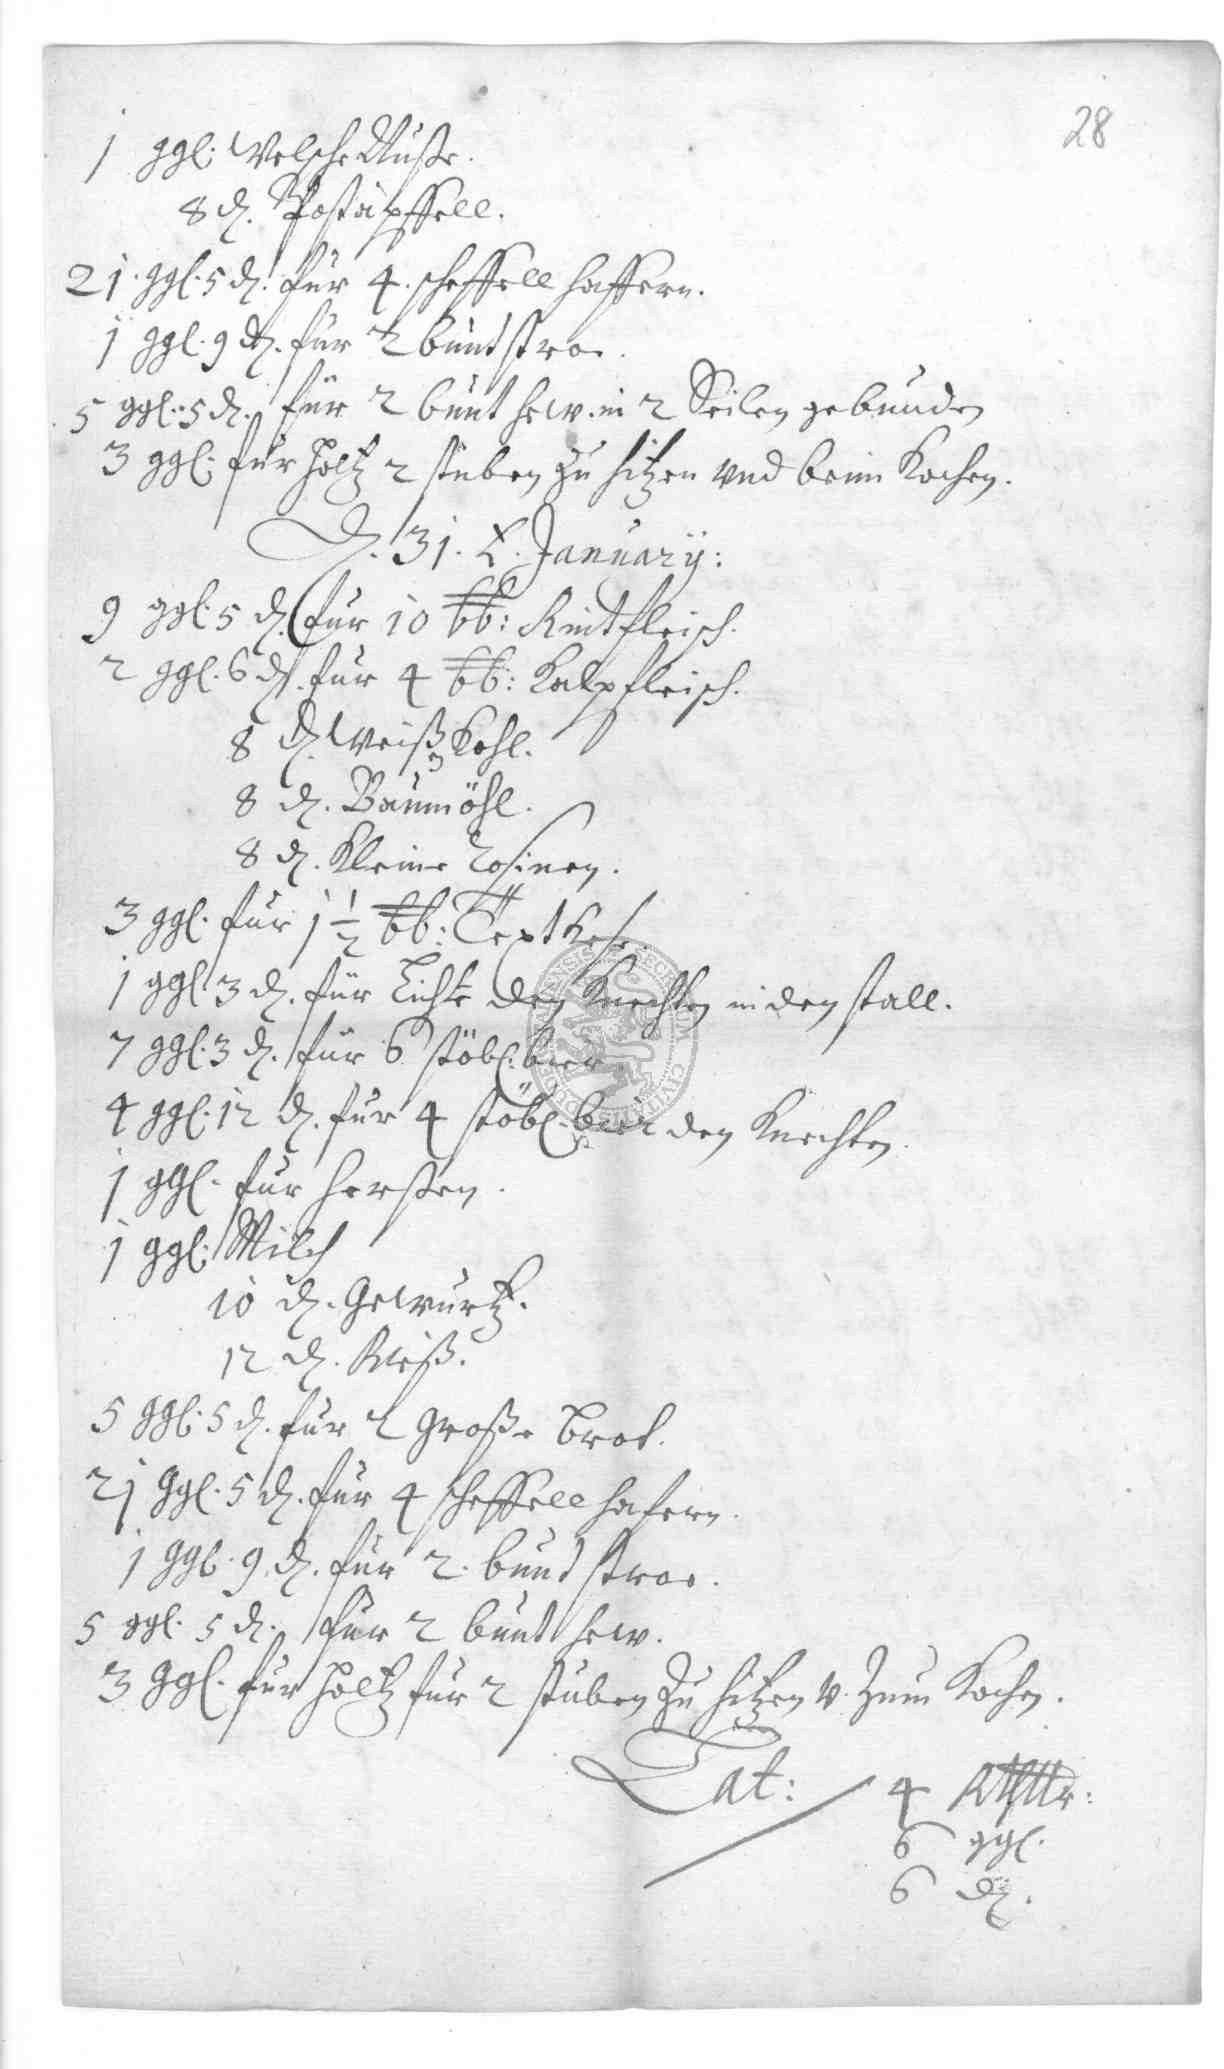 28
1 ggl: Welsche Nuße.
8 d. Postäpffell.
21. ggl. 5 d. für 4. scheffell haffern.
1 ggl. 9 d. für 2 bunt stro.
5 ggl. 5 d. für 2 bunt hew. in 2 Seilen gebunden
3 ggl. für Holtz 2 stuben zu hitzen vnd beim Kochen.
D. 31. X. Januarij:
9 ggl. 5 d. für 10 lb: Rintfleisch.
2 ggl. 6 d. für 4 lb: Kalpfleisch.
8 d. Weiß Kohl.
8 d. Baumöhl.
8 d. Kleine Rosinen.
3 ggl. für 1 1/2 lb:
1 ggl 3 d. für Lichte den Knechten in den stall.
7 ggl. 3 d. für 6 stöb. bier
4 ggl. 12 d. für 4 stöb. bier den Knechten.
1 ggl. für
1 ggl. Milch
10 d. Gewürtz.
12 d. Reiß.
5 ggl. 5 d. für 2 große brot.
21 ggl. 5 d. für 4 scheffell hafern.
1 ggl. 9 d. für 2. bunt stroe.
5 ggl. 5 d. für 2 bunt hew.
3 ggl. für Holtz für 2 stuben zu hitzen v. zum Kochen.
Lat: 4 Rthlr:
6 ggl.
6 d.